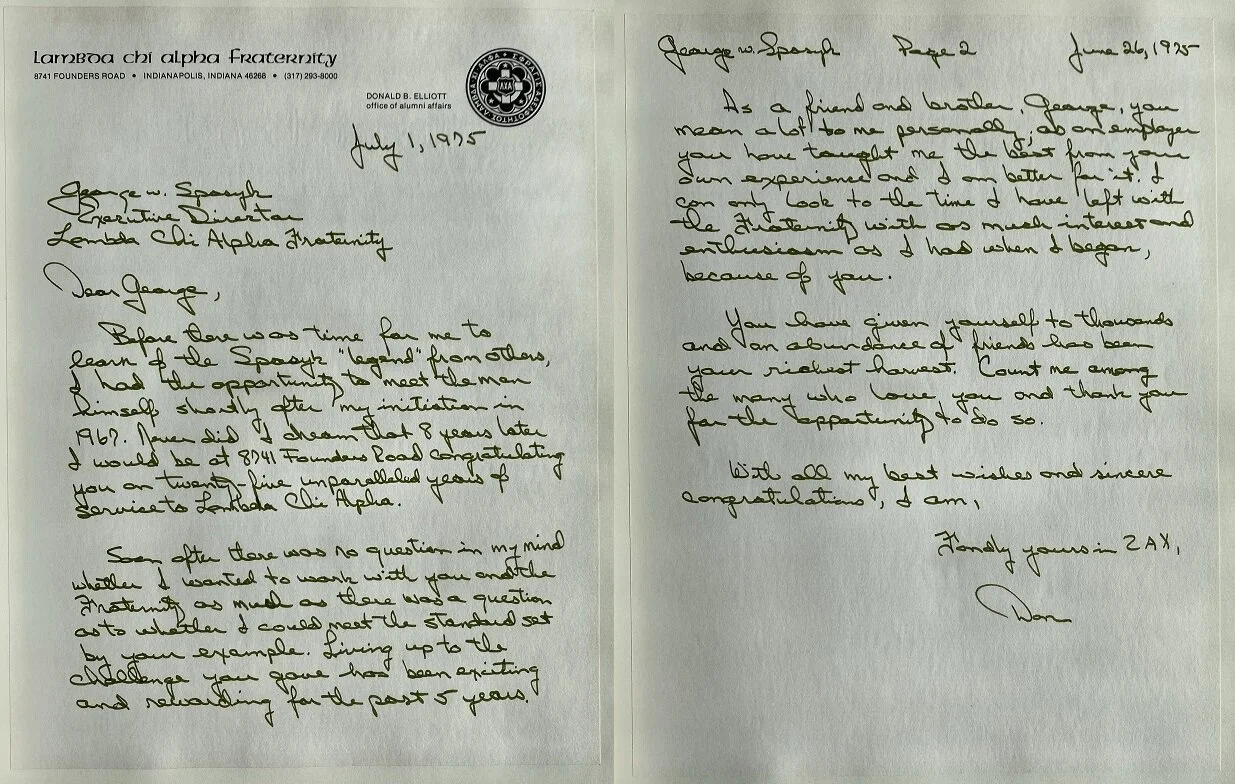 Lambda chi alpha fraternity
8741 FOUNDERS ROAD • INDIANAPOLIS, INDIANA 46268 • (317) 293-8000
DONALD B. ELLIOTT
office of alumni affairs
ΛΧΑ
July 1, 1975
George W. Spasyk
Executive Director
Lambda Chi Alpha Fraternity
Dear George,
Before there was time for me to
learn of the Spasyk "legend" from others,
I had the opportunity to meet the man
himself shortly after my initiation in
1967. Never did I dream that 8 years later
I would be at 8741 Founders Road congratulating
you on twenty-five unparalleled years of
service to Lambda Chi Alpha.
Soon after there was no question in my mind
whether I wanted to work with you and the
Fraternity as much as there was a question
as to whether I could meet the standard set
by your example. Living up to the
challenge you gave has been exciting
and rewarding for the past 5 years.
George W. Spasyk Page 2 June 26, 1975
As a friend and brother, George, you
mean a lot to me personally; as an employer
you have taught me the best from your
own experience and I am better for it. I
can only look to the time I have left with
the Fraternity with as much interest and
enthusiasm as I had when I began,
because of you.
You have given yourself to thousands
and an abundance of friends has been
your richest harvest. Count me among
the many who love you and thank you
for the opportunity to do so.
With all my best wishes and sincere
congratulations, I am,
Fondly yours in ZAX,
Don